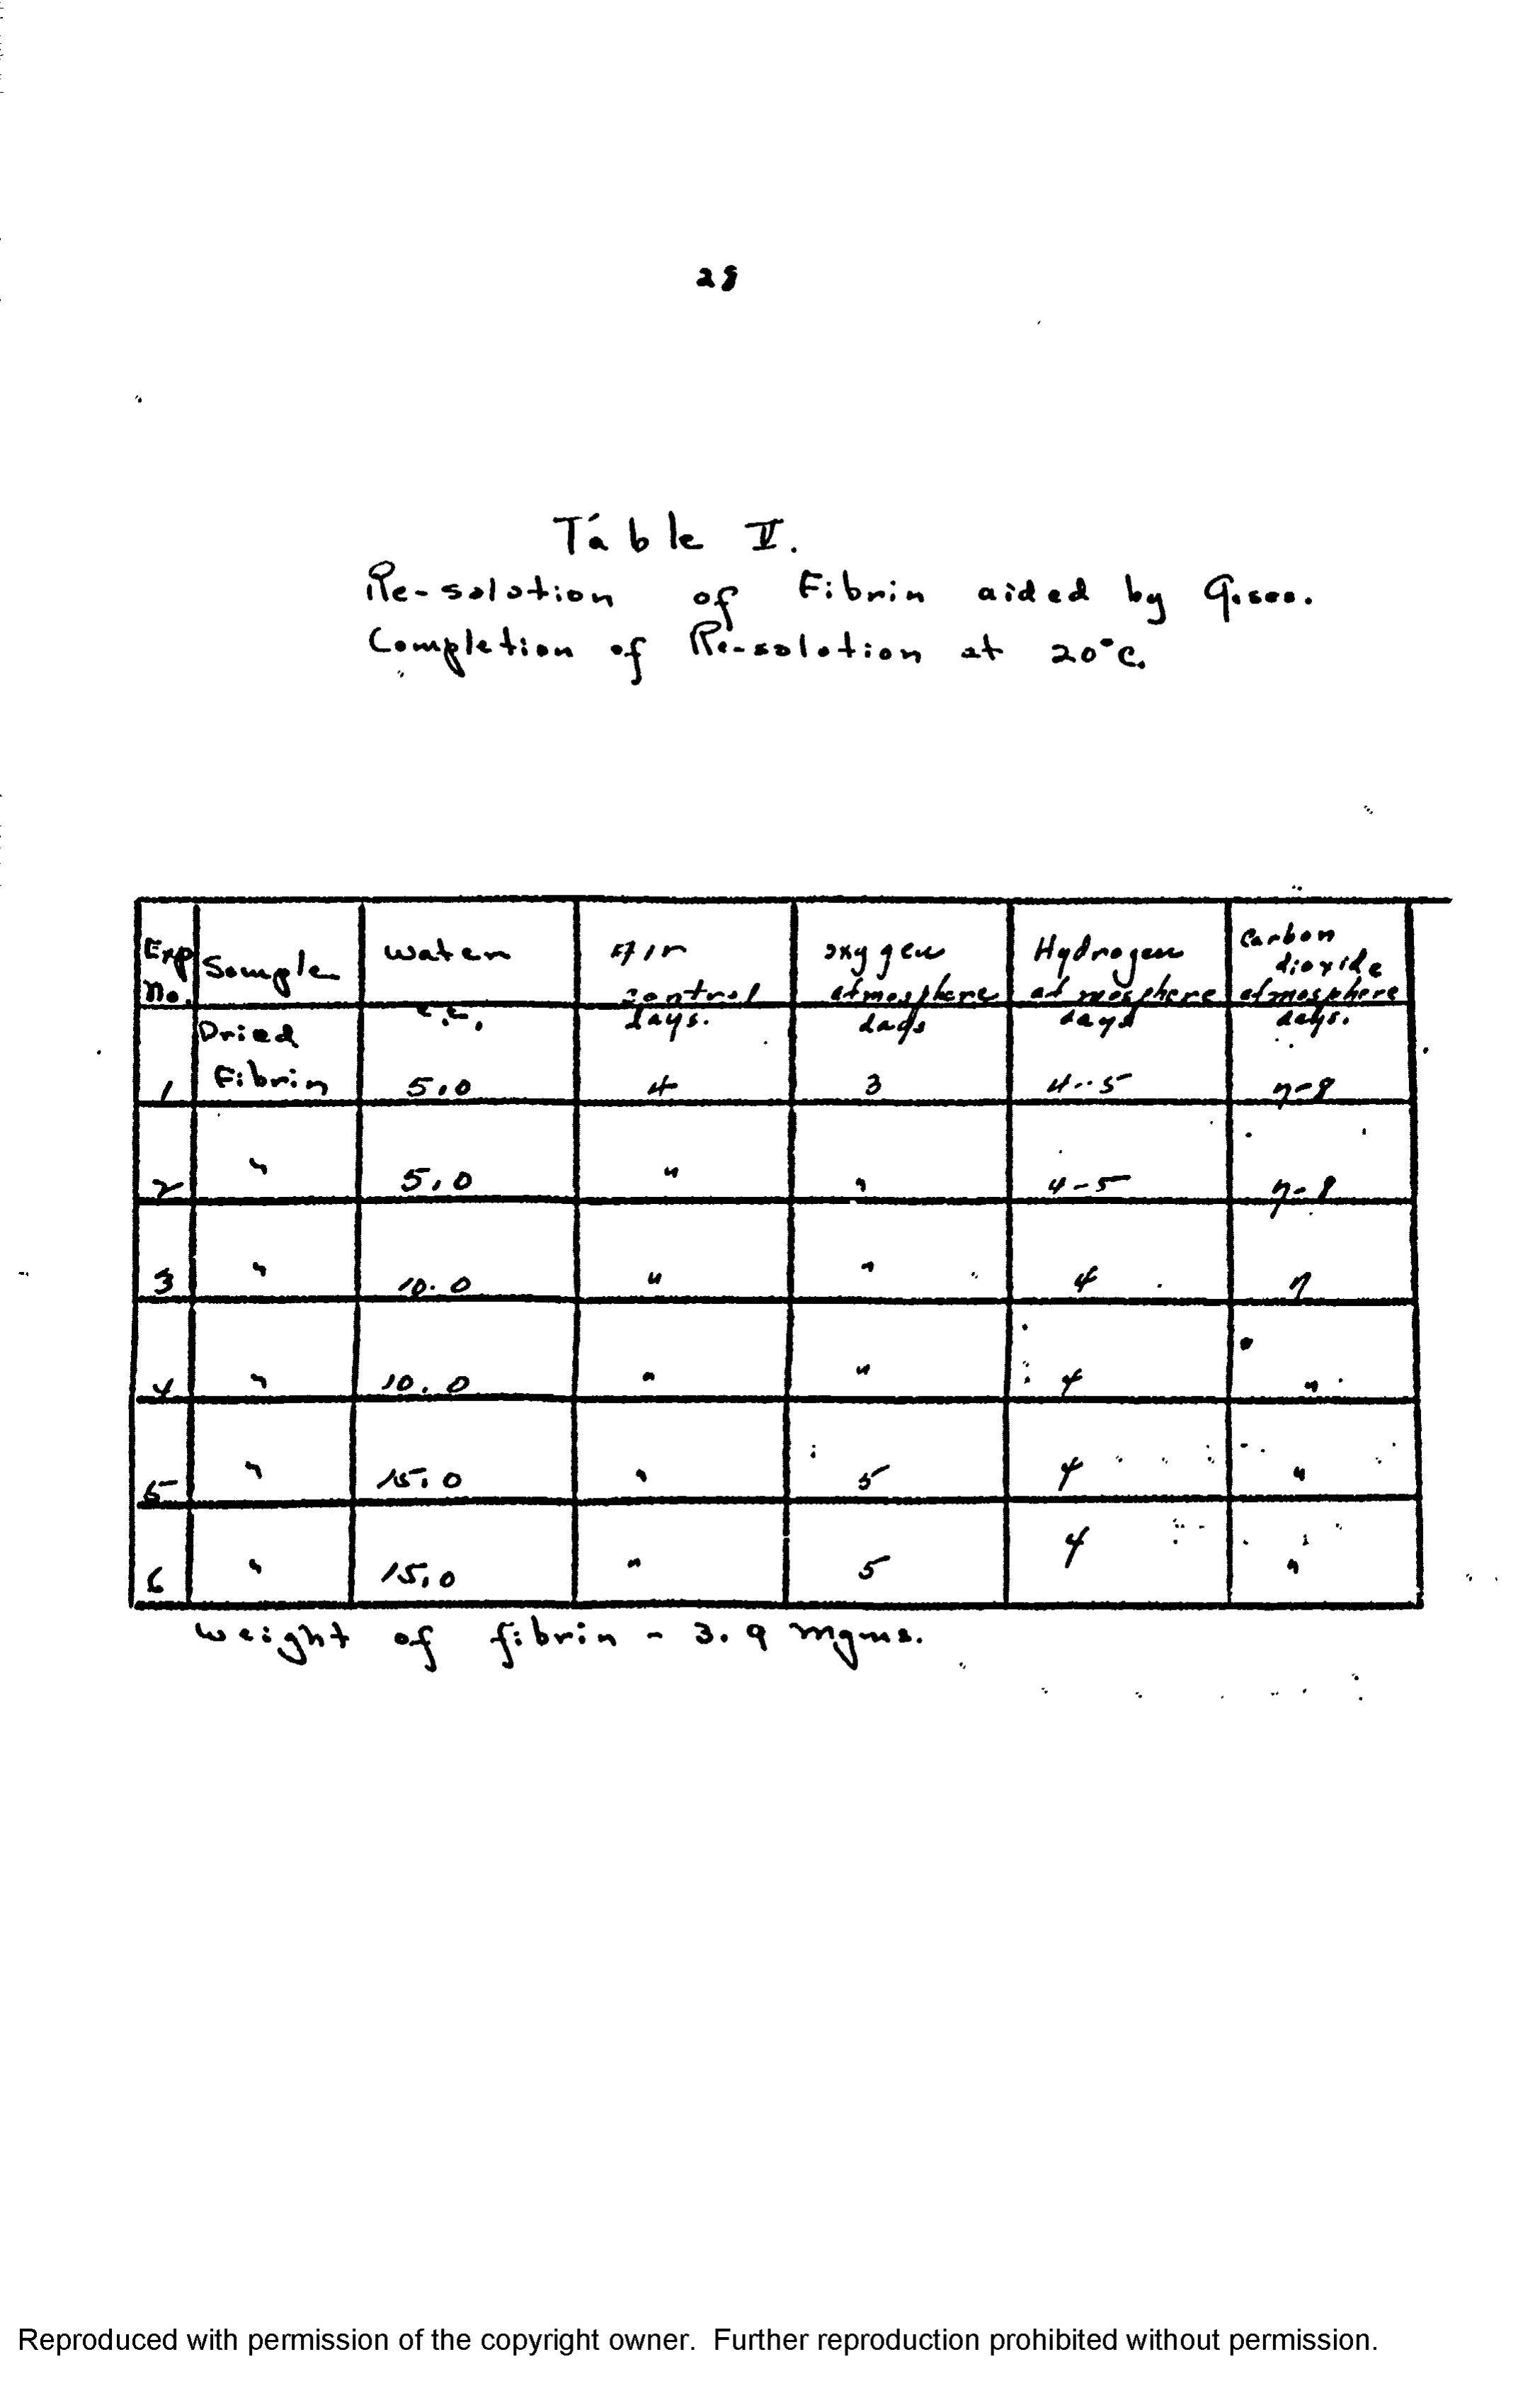 28
Table V.
Re-solution of Fibrin aided by Gases.
Completion of Re-solution at 20°C.
Exp No. Sample Water c.c. Air control days. Oxygen atmosphere days Hydrogen atmosphere days Carbon dioxide atmosphere days.
1 Dried Fibrin 5.0 4 3 4-5 7-8
2 " 5.0 " " 4-5 7-8
3 " 10.0 " " 4 7
4 " 10.0 " " 4 "
5 " 15.0 " 5 4 "
6 " 15.0 " 5 4 "
Weight of fibrin - 3.9 mgms.
Reproduced with permission of the copyright owner. Further reproduction prohibited without permission.